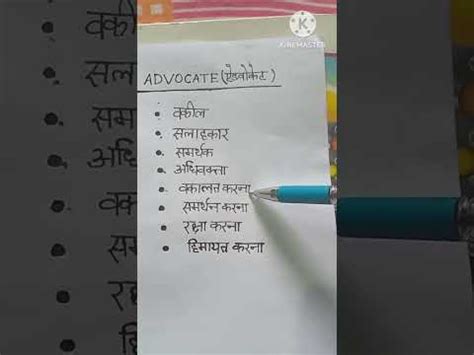 KINEMASTER
ADVOCATE (ऐडवोकेट)
वकील
सलाहकार
समर्थक
अधिवक्ता
वकालत करना
समर्थन करना
रक्षा करना
हिमायत करना